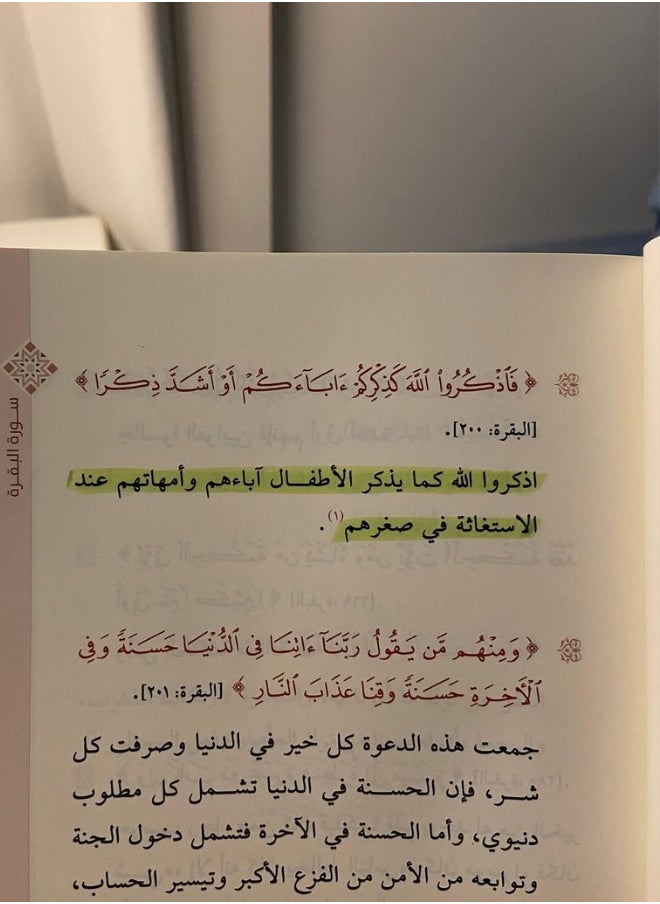 سورة البقرة
﴿ فَٱذْكُرُوا۟ ٱللَّهَ كَذِكْرِكُمْ ءَابَآءَكُمْ أَوْ أَشَدَّ ذِكْرًا ﴾
[البقرة: ٢٠٠].
اذكروا الله كما يذكر الأطفـــال آباءهم وأمهاتهم عند
الاستغاثة في صغرهم(١).
﴿ وَمِنْهُم مَّن يَقُولُ رَبَّنَآ ءَاتِنَا فِى ٱلدُّنْيَا حَسَنَةً وَفِى
ٱلْأَخِرَةِ حَسَنَةً وَقِنَا عَذَابَ ٱلنَّارِ ﴾ [البقرة: ٢٠١].
جمعت هذه الدعوة كل خير في الدنيا وصرفت كل
شــر، فإن الحسنة في الدنيا تشــمل كل مطلوب
دنيوي، وأما الحسنة في الآخرة فتشمل دخول الجنة
وتوابعه من الأمن من الفزع الأكبر وتيسير الحساب،